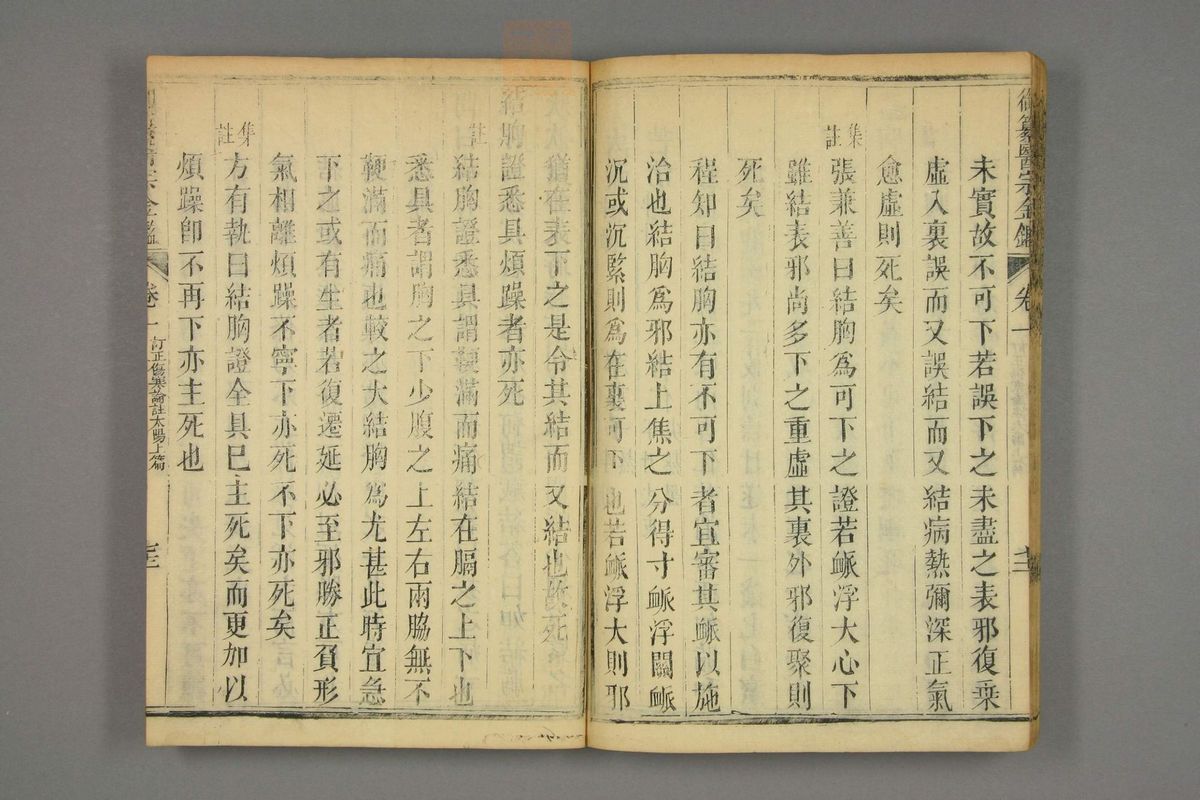 御纂醫宗金鑑 卷一
未實故不可下若誤下之未盡之表邪復乘
虛入裏誤而又誤結而又結病熱彌深正氣
愈虛則死矣
集註
張兼善曰結胸爲可下之證若𧖴浮大心下
雖結表邪尚多下之重虛其裏外邪復聚則
死矣
程知曰結胸亦有不可下者宜審其𧖴以施
治也結胸爲邪結上焦之分得寸𧖴浮關𧖴
沉或沉緊則爲在裏可下也若𧖴浮大則邪
猶在表下之是令其結而又結也故死
結胸證悉具煩躁者亦死
註
結胸證悉具謂鞕滿而痛結在膈之上下也
悉具者謂胸之下少腹之上左右兩脇無不
鞕滿而痛也較之大結胸爲尤甚此時宜急
下之或有生者若復遷延必至邪勝正負形
氣相離煩躁不寧下亦死不下亦死矣
集註
方有執曰結胸證全具已主死矣而更加以
煩躁卽不再下亦主死也
卷一 訂正傷寒論註太陽上篇